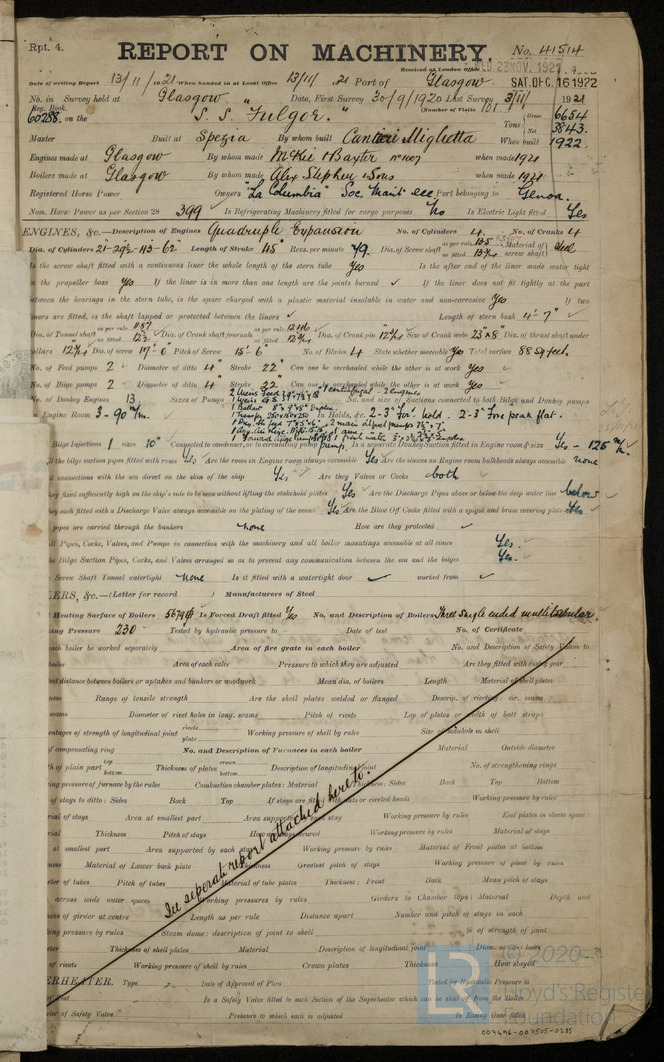 Rpt. 4.
REPORT ON MACHINERY. No. 41514
Received at London Office WED. 23 NOV. 1921
SAT. DEC. 16 1922
Date of writing Report 13/11/1921 When handed in at Local Office 13/11/21 Port of Glasgow
No. in Survey held at Glasgow Date, First Survey 30/9/1920 Last Survey 3/11/ 1921
Reg. Book. (Number of Visits 101)
60288 on the S. S. "Fulgor." Tons Gross 6654 Net 3843
Master Built at Spezia By whom built When built 1922
Engines made at Glasgow By whom made McKie & Baxter No 1007 when made 1921
Boilers made at Glasgow By whom made Alex Stephen & Sons when made 1921
Registered Horse Power Owners "La Columbia" Soc. Marit Port belonging to Genoa.
Nom. Horse Power as per Section 28 399 Is Refrigerating Machinery fitted for cargo purposes No Is Electric Light fitted Yes
ENGINES, &c.—Description of Engines Quadruple Expansion No. of Cylinders 4. No. of Cranks 4
Dia. of Cylinders 21"-29½-43-62" Length of Stroke 45" Revs. per minute 79. Dia. of Screw shaft as per rule as fitted Material of screw shaft steel
Is the screw shaft fitted with a continuous liner the whole length of the stern tube Yes Is the after end of the liner made water tight
in the propeller boss Yes If the liner is in more than one length are the joints burned ✓ If the liner does not fit tightly at the part
between the bearings in the stern tube, is the space charged with a plastic material insoluble in water and non-corrosive Yes If two
liners are fitted, is the shaft lapped or protected between the liners ✓ Length of stern bush 4'-7"
Dia. of Tunnel shaft as per rule as fitted Dia. of Crank shaft journals as per rule as fitted Dia. of Crank pin Size of Crank webs 23"x8" Dia. of thrust shaft under
collars Dia. of screw 17'-0" Pitch of Screw 15'-6" No. of Blades 4 State whether moveable Yes Total surface 88 sq feet.
No. of Feed pumps 2 Diameter of ditto 4" Stroke 22" Can one be overhauled while the other is at work Yes
No. of Bilge pumps 2 Diameter of ditto 4" Stroke 22 Can one be overhauled while the other is at work Yes
No. of Donkey Engines 13 Sizes of Pumps No. and size of Suctions connected to both Bilge and Donkey pumps
Engine Room 3-90 m/m. In Holds, &c. 2-3" for'd hold. 2-3" Fore peak flat.
Bilge Injections 1 sizes 10" Connected to condenser, or to circulating pump Pump. Is a separate Donkey Suction fitted in Engine room & size Yes - 125 m/m.
ll the bilge suction pipes fitted with roses Yes Are the roses in Engine room always accessible Yes Are the sluices on Engine room bulkheads always accessible none
ll connections with the sea direct on the skin of the ship Yes Are they Valves or Cocks both
hey fixed sufficiently high on the ship's side to be seen without lifting the stokehold plates Yes Are the Discharge Pipes above or below the deep water line below
hey each fitted with a Discharge Valve always accessible on the plating of the vessel Yes Are the Blow Off Cocks fitted with a spigot and brass covering plate Yes
pipes are carried through the bunkers none How are they protected ✓
ll Pipes, Cocks, Valves, and Pumps in connection with the machinery and all boiler mountings accessible at all times Yes.
he Bilge Suction Pipes, Cocks, and Valves arranged so as to prevent any communication between the sea and the bilges Yes.
Screw Shaft Tunnel watertight none Is it fitted with a watertight door ✓ worked from ✓
ERS, &c.—(Letter for record ) Manufacturers of Steel
Heating Surface of Boilers Is Forced Draft fitted Yes No. and Description of Boilers Three single ended multitubular.
ing Pressure 230 Tested by hydraulic pressure to Date of test No. of Certificate
each boiler be worked separately Area of fire grate in each boiler No. and Description of Safety Valves to
boiler Area of each valve Pressure to which they are adjusted Are they fitted with easing gear
st distance between boilers or uptakes and bunkers or woodwork Mean dia. of boilers Length Material of shell plates
ness Range of tensile strength Are the shell plates welded or flanged Descrip. of riveting: cir. seams
seams Diameter of rivet holes in long. seams Pitch of rivets Lap of plates or width of butt straps
entages of strength of longitudinal joint rivets plate Working pressure of shell by rules Size of manhole in shell
of compensating ring No. and Description of Furnaces in each boiler Material Outside diameter
th of plain part top bottom Thickness of plates crown bottom Description of longitudinal joint No. of strengthening rings
ing pressure of furnace by the rules Combustion chamber plates: Material Thickness: Sides Back Top Bottom
of stays to ditto: Sides Back Top If stays are fitted with nuts or riveted heads Working pressure by rules
ial of stays Area at smallest part Area supported by each stay Working pressure by rules End plates in steam space:
ial Thickness Pitch of stays How are stays secured Working pressure by rules Material of stays
at smallest part Area supported by each stay Working pressure by rules Material of Front plates at bottom
ness Material of Lower back plate Thickness Greatest pitch of stays Working pressure of plate by rules
eter of tubes Pitch of tubes Material of tube plates Thickness: Front Back Mean pitch of stays
across wide water spaces Working pressures by rules Girders to Chamber tops: Material Depth and
ness of girder at centre Length as per rule Distance apart Number and pitch of stays in each
ing pressure by rules Steam dome: description of joint to shell % of strength of joint
ter Thickness of shell plates Material Description of longitudinal joint Diam. of rivet holes
of rivets Working pressure of shell by rules Crown plates Thickness How stayed
ERHEATER. Type Date of Approval of Plan Tested by Hydraulic Pressure to
of Test Is a Safety Valve fitted to each Section of the Superheater which can be shut off from the Boiler
ter of Safety Valve Pressure to which each is adjusted Is Easing Gear fitted
In seperate report attached hereto.
© 2020
Lloyd's Register
Foundation
007496-007505-0235